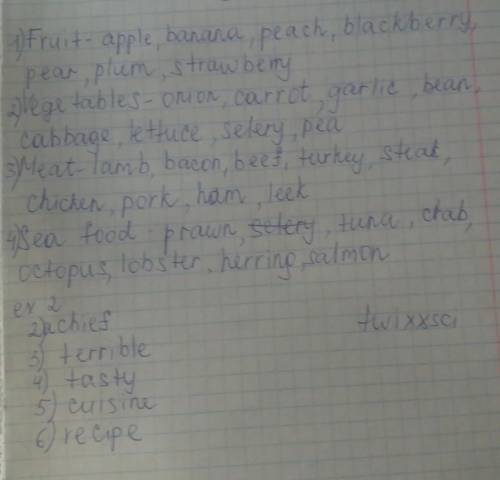 1) Fruit - apple, banana, peach, blackberry,
pear, plum, strawberry
2) Vegetables - onion, carrot, garlic, bean,
cabbage, lettuce, selery, pea
3) Meat - lamb, bacon, beef, turkey, steak,
chicken, pork, ham, leek
4) Sea food - prawn, selery, tuna, crab,
octopus, lobster, herring, salmon
ex 2
2) a chief
3) terrible
4) tasty
5) cuisine
6) recipe
twixxsci